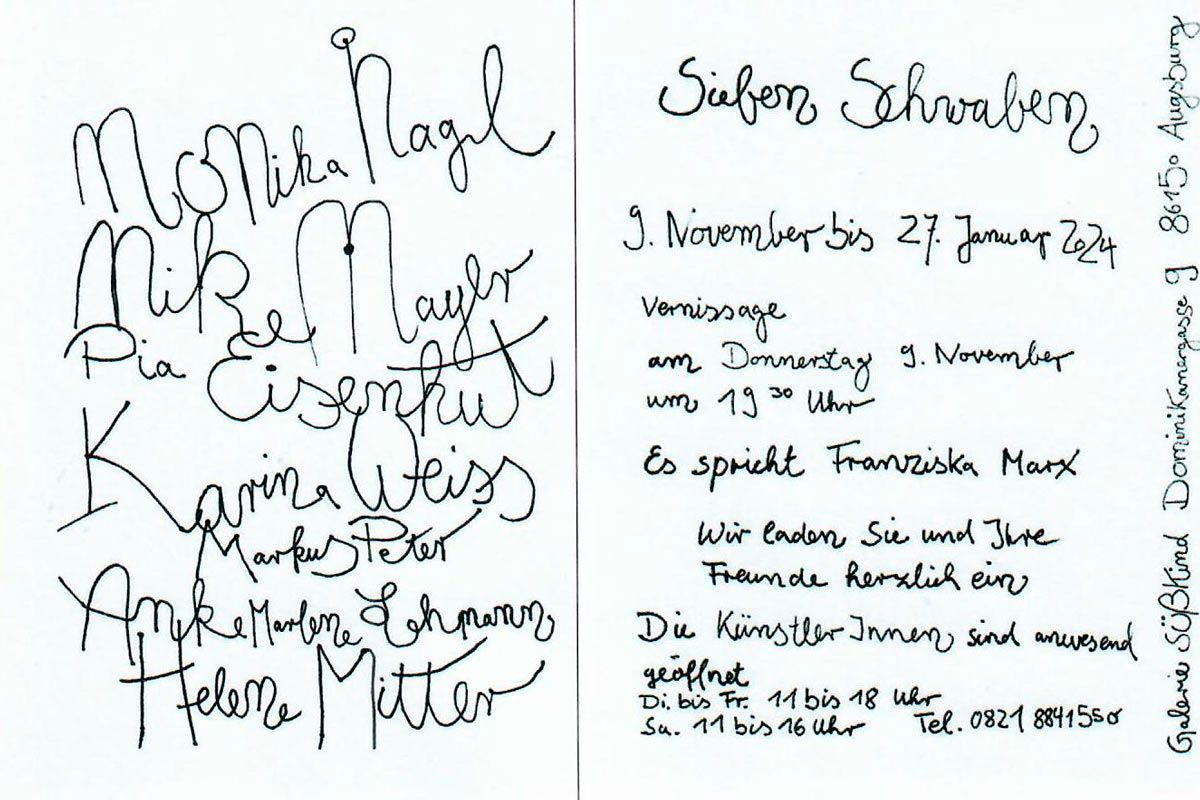 Monika Nagel
Mike Mayer
Pia Eisenhut
Karina Weiss
Markus Peter
Anke Marlene Lehmann
Helene Mitter
Sieben Schwaben
9. November bis 27. Januar 2024
Vernissage
am Donnerstag 9. November
um 19 30 Uhr
Es spricht Franziska Marx
Wir laden Sie und Ihre
Freunde herzlich ein
Die KünstlerInnen sind anwesend
geöffnet
Di. bis Fr. 11 bis 18 Uhr
Sa. 11 bis 16 Uhr Tel. 0821 8841550
Galerie SÜßKind Dominikanergasse 9 86150 Augsburg